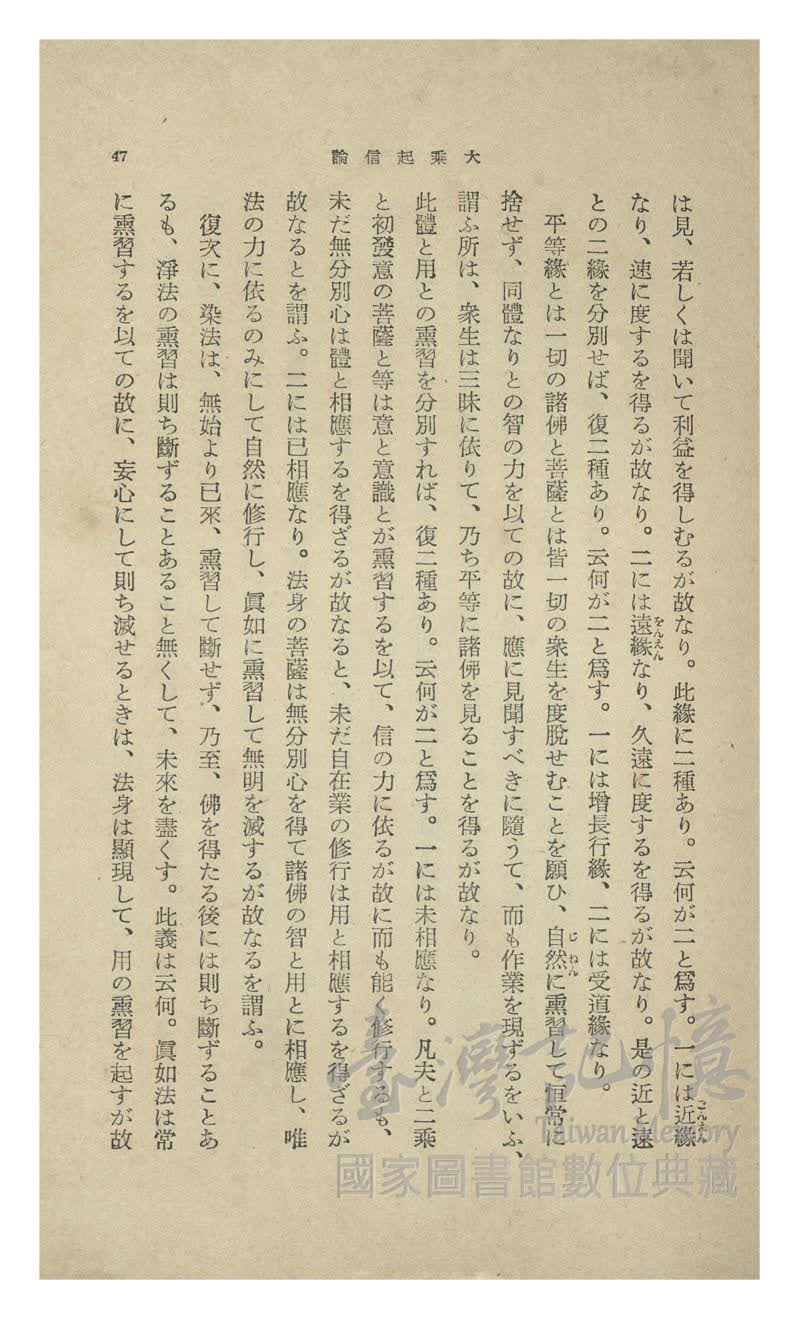 大乘起信論
47
は見、若しくは聞いて利益を得しむるが故なり。此緣に二種あり。云何が二と爲す。一には近緣
ごんえん
なり、速に度するを得るが故なり。二には遠緣なり、久遠に度するを得るが故なり。是の近と遠
をんえん
との二緣を分別せば、復二種あり。云何が二と爲す。一には增長行緣、二には受道緣なり。
平等緣とは一切の諸佛と菩薩とは皆一切の衆生を度脫せむことを願ひ、自然に熏習して恒常に
じねん
捨せず、同體なりとの智の力を以ての故に、應に見聞すべきに隨うて、而も作業を現ずるをいふ、
謂ふ所は、衆生は三昧に依りて、乃ち平等に諸佛を見ることを得るが故なり。
此體と用との熏習を分別すれば、復二種あり。云何が二と爲す。一には未相應なり。凡夫と二乘
と初發意の菩薩と等は意と意識とが熏習するを以て、信の力に依るが故に而も能く修行するも、
未だ無分別心は體と相應するを得ざるが故なると、未だ自在業の修行は用と相應するを得ざるが
故なるとを謂ふ。二には已相應なり。法身の菩薩は無分別心を得て諸佛の智と用とに相應し、唯
法の力に依るのみにして自然に修行し、眞如に熏習して無明を滅するが故なるを謂ふ。
復次に、染法は、無始より已來、熏習して斷せず、乃至、佛を得たる後には則ち斷ずることあ
るも、淨法の熏習は則ち斷ずることあること無くして、未來を盡くす。此義は云何。眞如法は常
に熏習するを以ての故に、妄心にして則ち滅せるときは、法身は顯現して、用の熏習を起すが故
臺灣記憶
Taiwan Memory
國家圖書館數位典藏